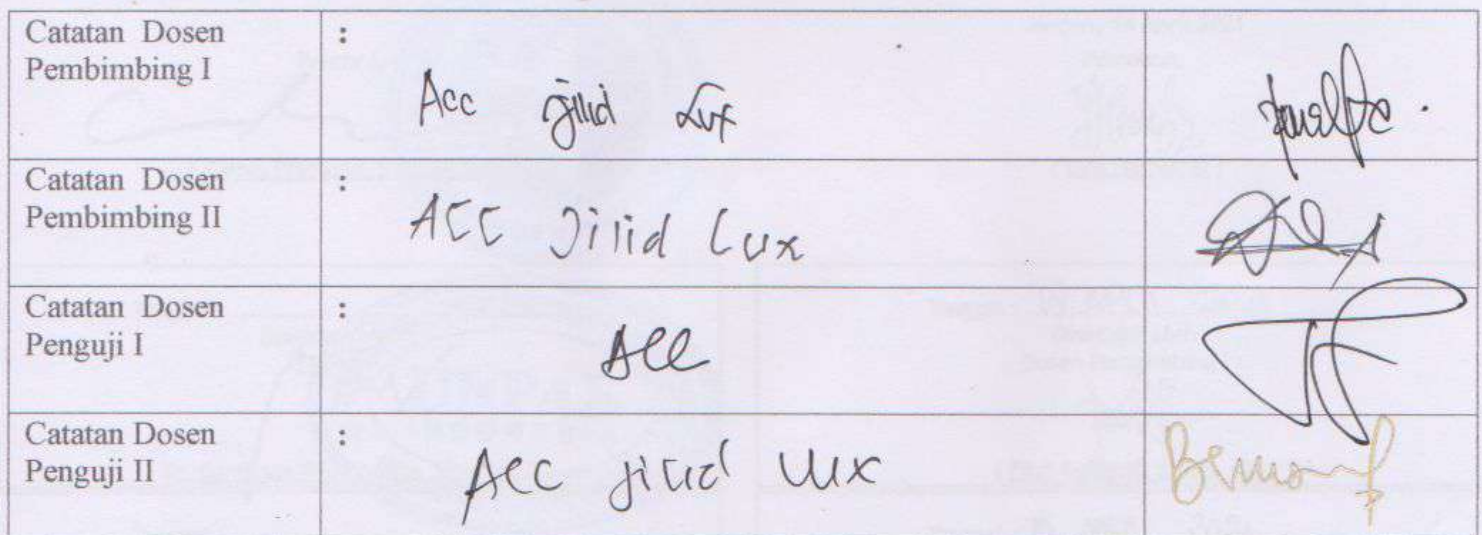 Catatan Dosen :
Pembimbing I
Acc jilid Lux
Catatan Dosen :
Pembimbing II
ACC Jilid Lux
Catatan Dosen :
Penguji I
Acc
Catatan Dosen :
Penguji II
Acc jilid lux